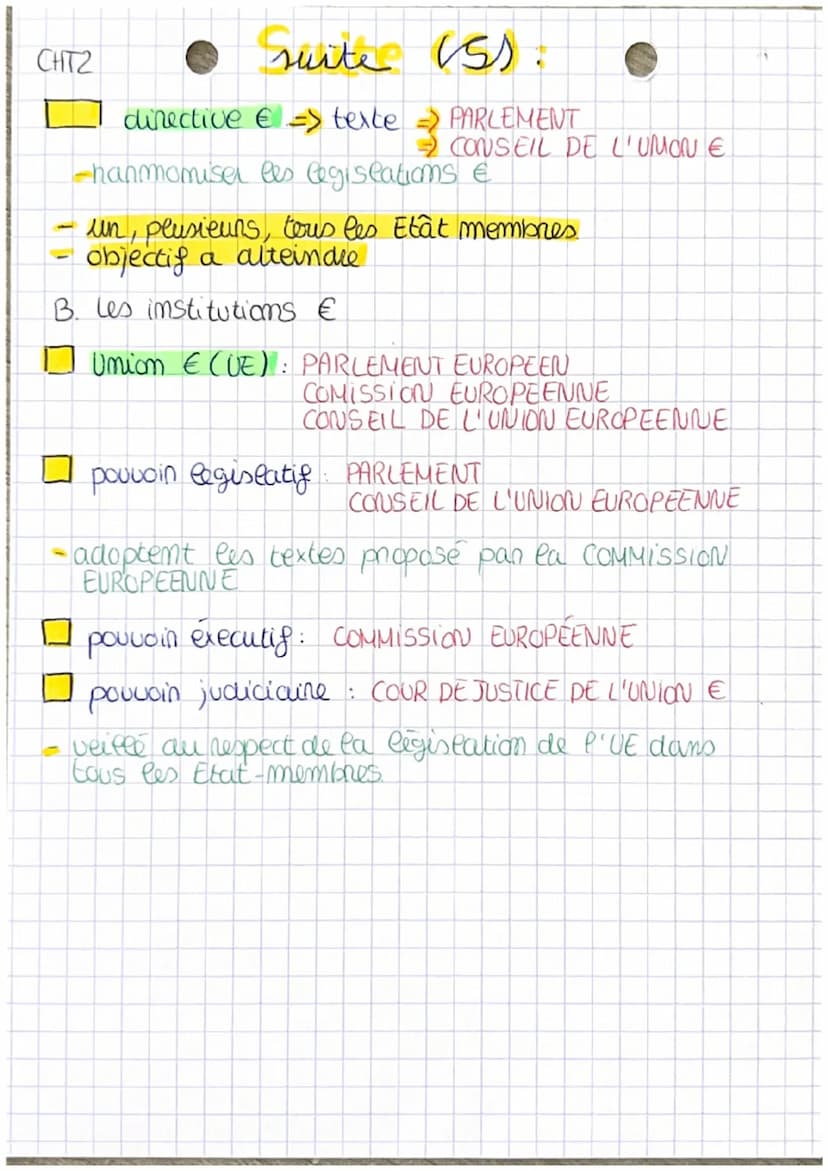 CHT2
Suite (5) :
directive € => texte => PARLEMENT
=> CONSEIL DE L'UNION €
- harmoniser les législations €
- un, plusieurs, tous les Etât membres
- objectif a atteindre
B. les institutions €
Union € (UE) : PARLEMENT EUROPEEN
COMISSION EUROPEENNE
CONSEIL DE L'UNION EUROPEENNE
pouvoir législatif : PARLEMENT
CONSEIL DE L'UNION EUROPEENNE
- adoptent les textes proposé par la COMMISSION
EUROPEENNE
pouvoir éxecutif : COMMISSION EUROPÉENNE
pouvoir judiciaire : COUR DE JUSTICE DE L'UNION €
- veille au respect de la législation de l'UE dans
tous les Etat-membres.